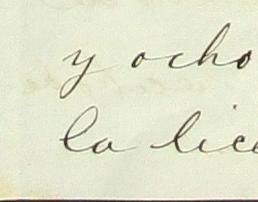 y ocho
la lice